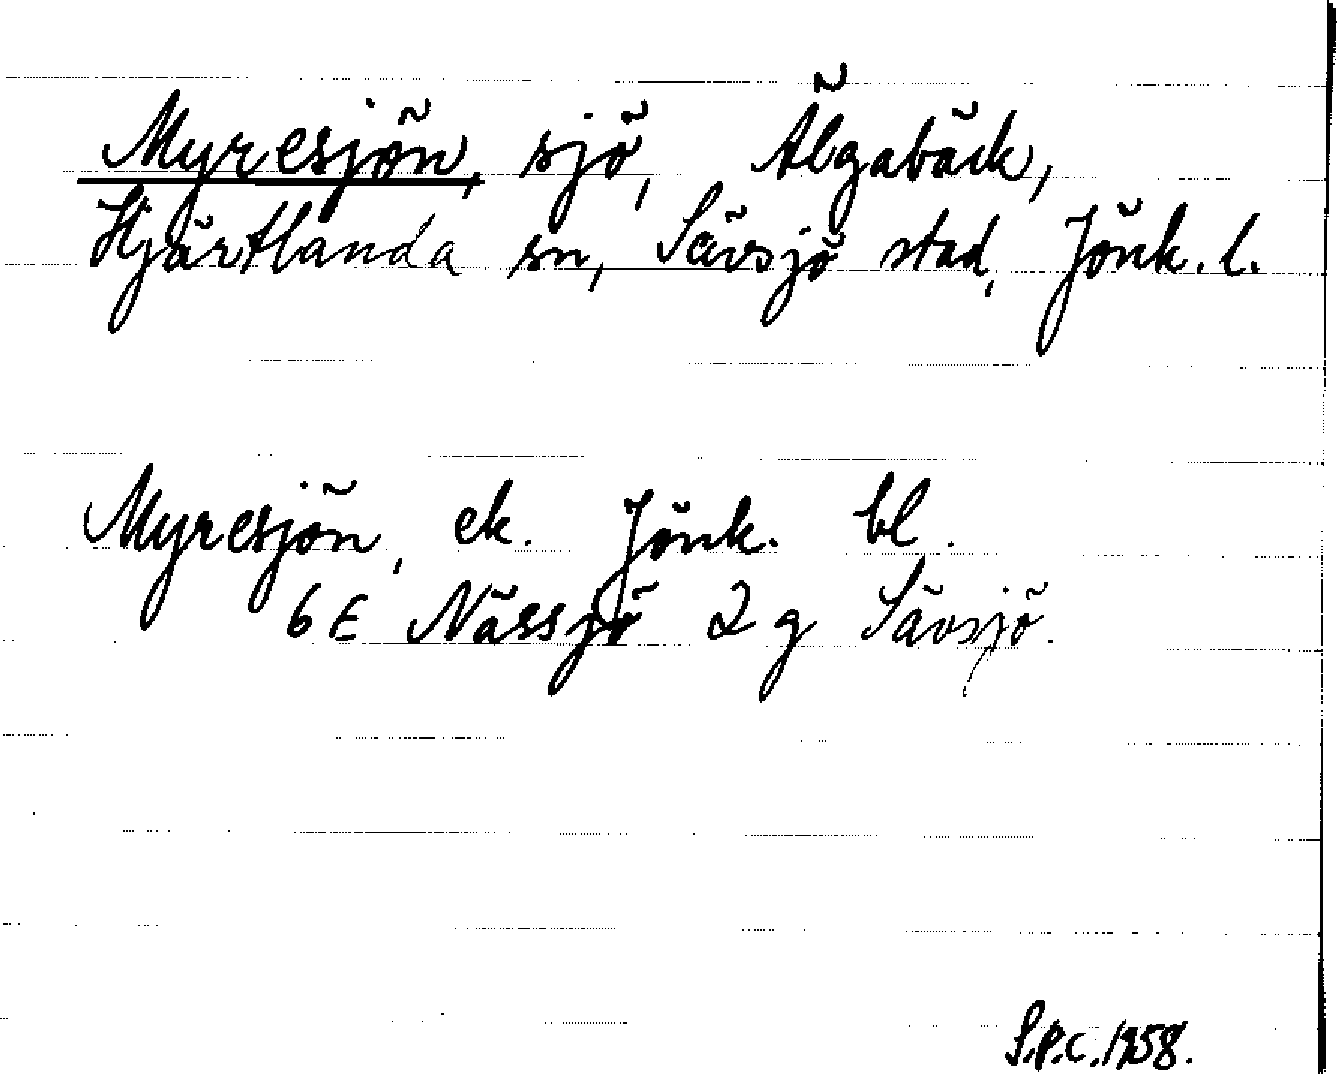 Myresjön, sjö, Älgabäck,
Hjärtlanda sn, Sävsjö stad, Jönk. l.
Myresjön, ek. Jönk. bl.
6 E Nässjö 2 g Sävsjö.
S.P.C. 1958.